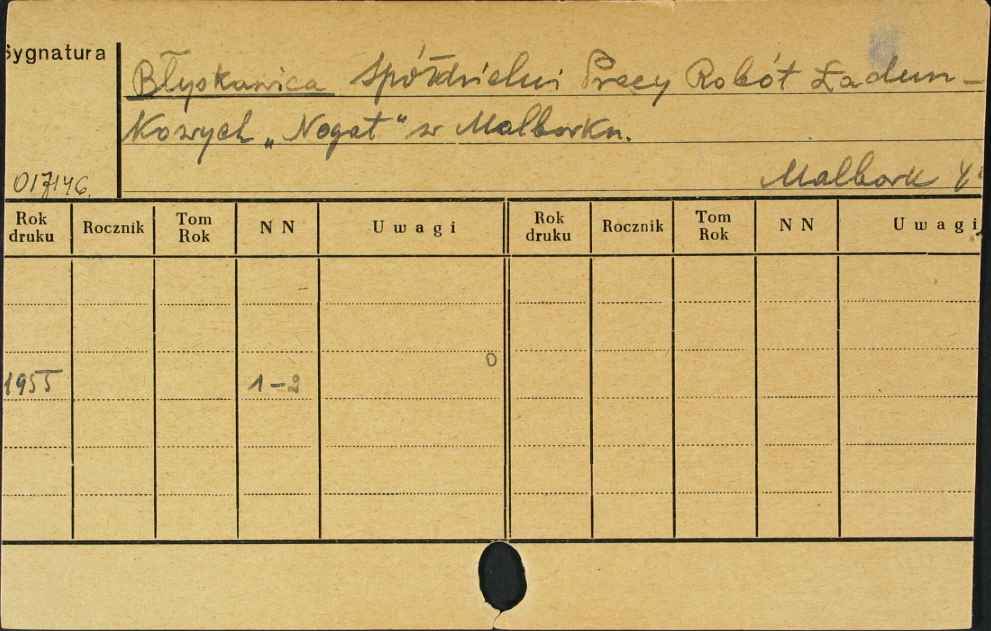 Sygnatura
Błyskawica Spółdzielni Pracy Robót Ładun-
kowych „Nogat" w Malborku.
017146
Malbork
Rok druku Rocznik Tom Rok NN Uwagi Rok druku Rocznik Tom Rok NN Uwagi
0
1955 1-2